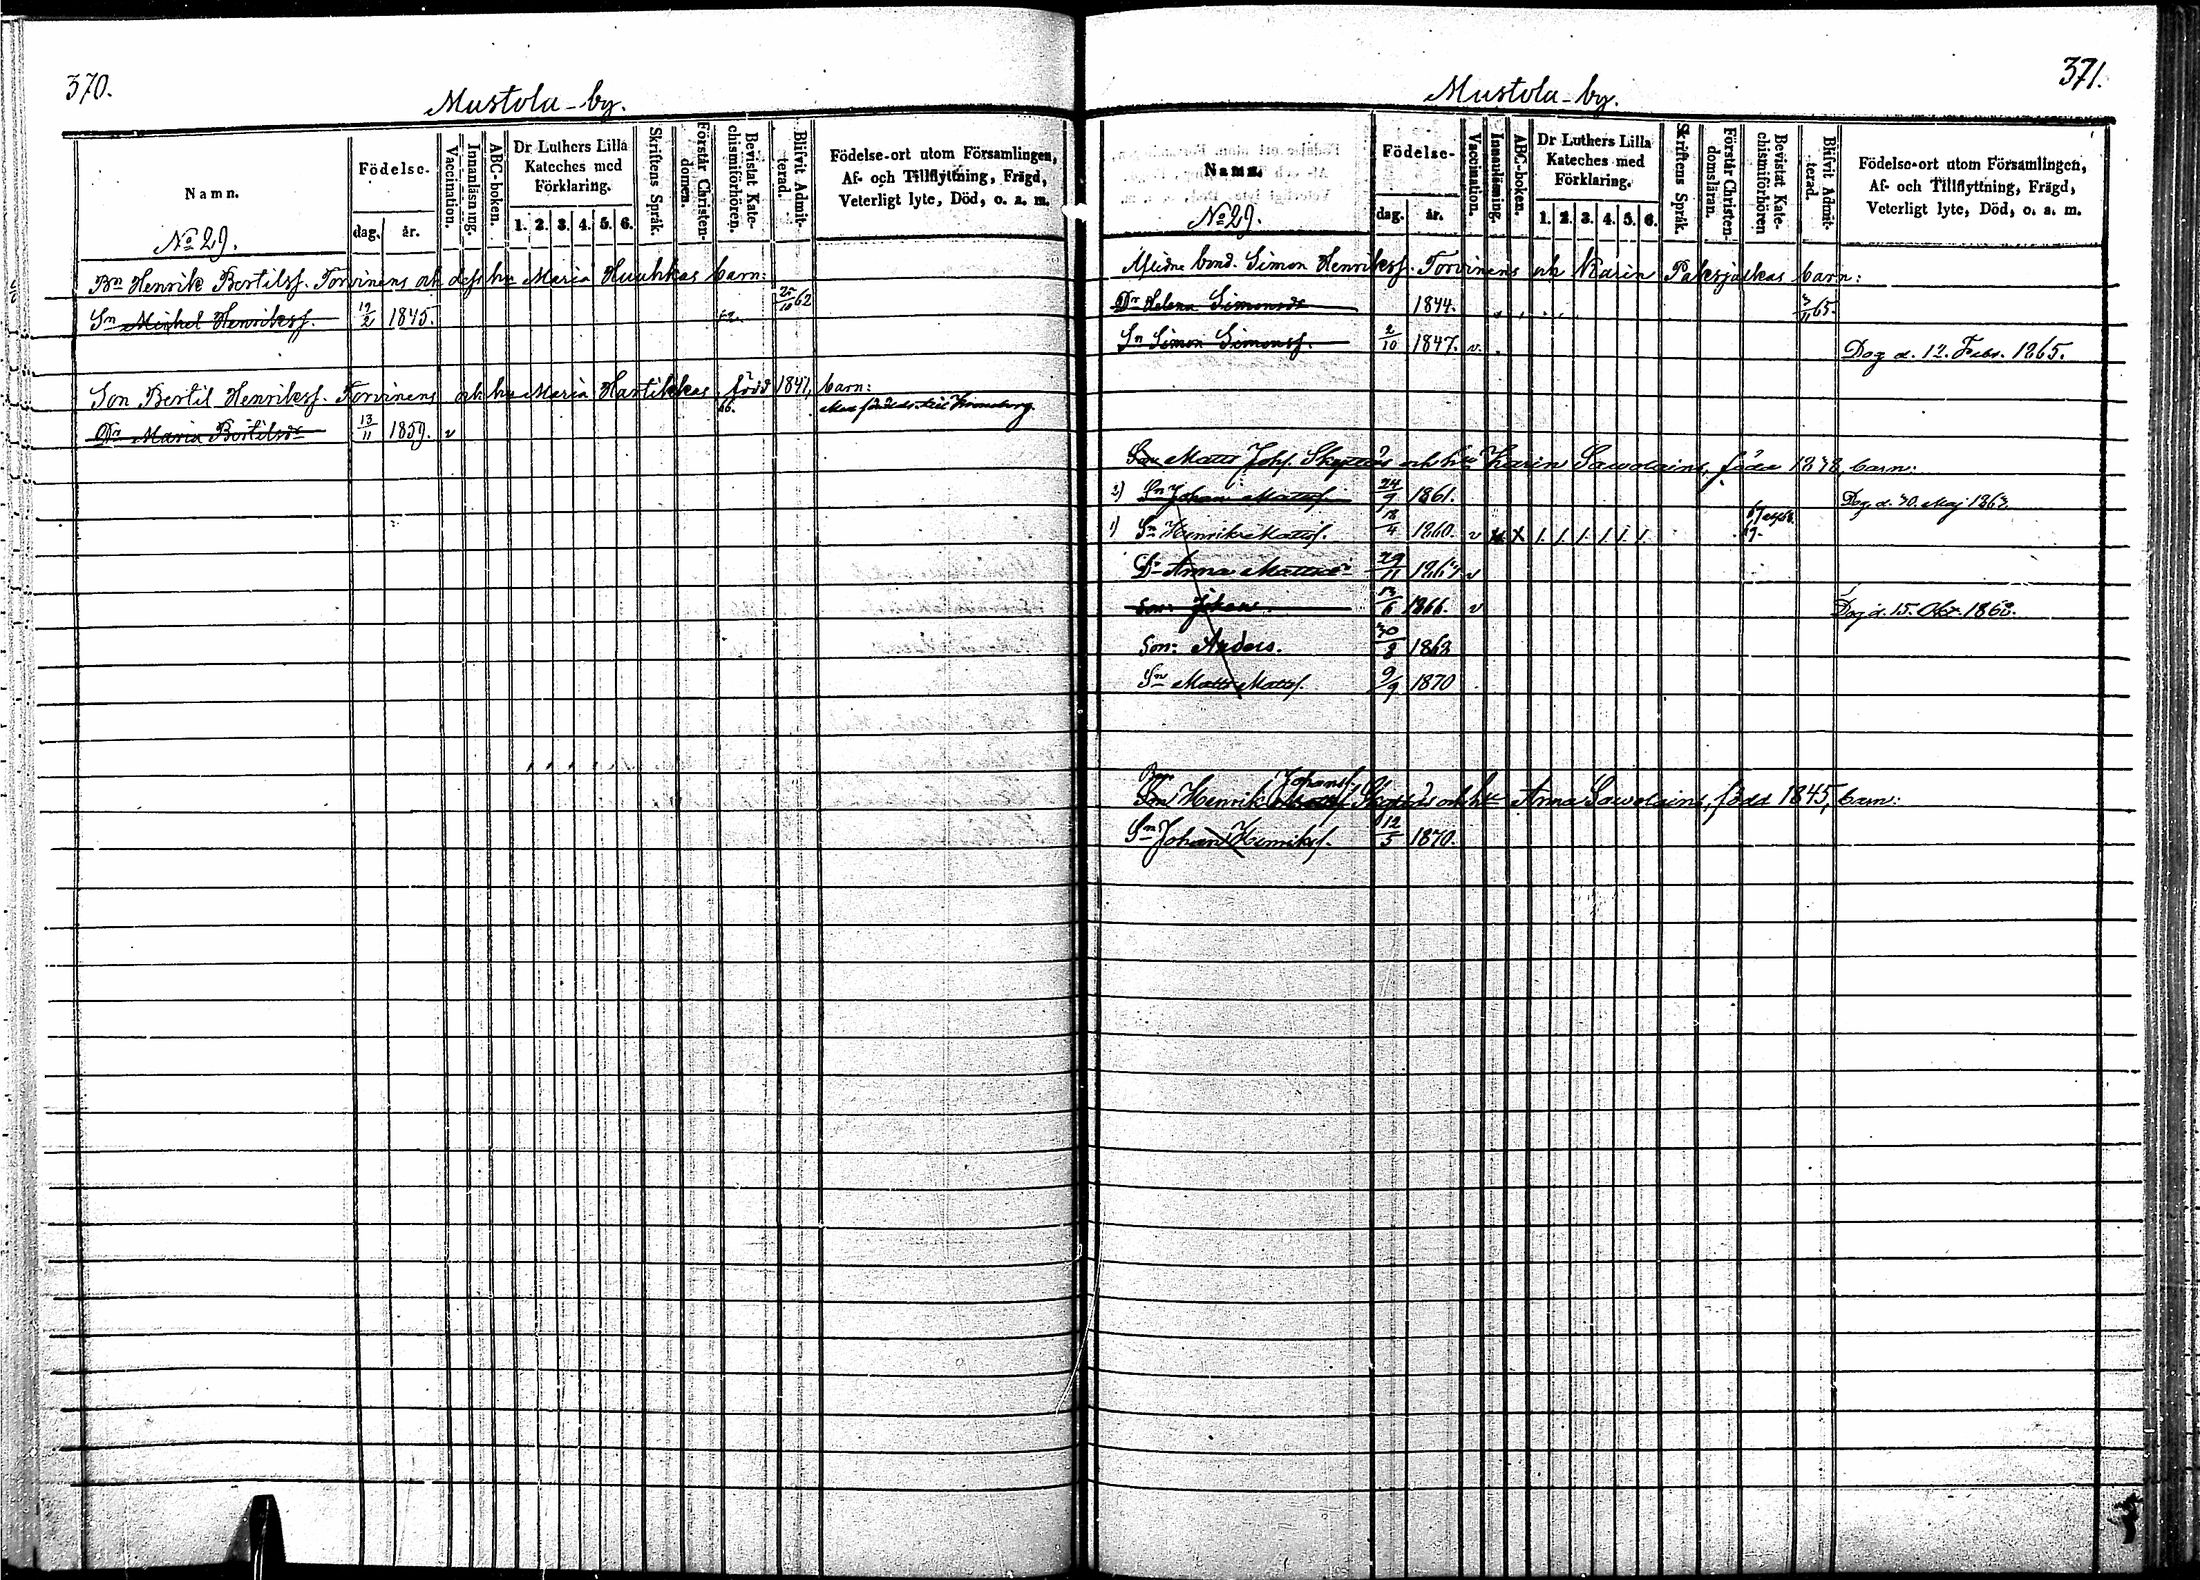 370.
Mustola-by.
Namn.
Födelse-
dag. år.
Vaccination.
Innanläsning.
ABC-boken.
Dr Luthers Lilla Kateches med Förklaring.
1. 2. 3. 4. 5. 6.
Skriftens Språk.
Förstår Christendomen.
Bevistat Katechismiförhören.
Blifvit Admitterad.
Födelse-ort utom Församlingen, Af- och Tillflyttning, Frägd, Veterligt lyte, Död, o. a. m.
No 29.
Bn Henrik Bertilss. Torvinens och dess hu Maria Huuhkas barn:
Sn Michel Henrikss. 12/2 1845. 62. 25/10 62
Son Bertil Henrikss. Torvinens och hu Maria Hartikkas, född 1841, barn:
Dr Maria Bertilsdr 13/11 1859. v
371.
Mustola-by.
Namn.
Födelse-
dag. år.
Vaccination.
Innanläsning.
ABC-boken.
Dr Luthers Lilla Kateches med Förklaring.
1. 2. 3. 4. 5. 6.
Skriftens Språk.
Förstår Christendomsläran.
Bevistat Katechismiförhören
Blifvit Admitterad.
Födelse-ort utom Församlingen, Af- och Tillflyttning, Frägd, Veterligt lyte, Död, o. a. m.
No 29.
Aflidne bond. Simon Henrikss. Torvinens och Karin barn:
Dr Helena Simonsdr 1844. 3/11 65.
Sn Simon Simonss. 2/10 1847. v. Dog d. 12. Febr. 1865.
Son Matts Johs. och hu Karin Sawolains, föda barn:
2) Sn Johan Mattss. 24/9 1861. Dog d. 30. Maj
1) Sn Henrik Mattss. 18/4 1860. v x x 1. 1. 1. 1. 1. 1. 67
Dr Anna Mattsdr 29/11 v
Son: Johan. 13/6 1866. v Dog d. 15. Okt. 1868.
Son: Anders. 30/8 1868
Sn Matts Mattss. 9/9 1870
Son Henrik Johanss. och hu Anna Sawolains, född 1845, barn:
Sn Johan Henrikss. 12/5 1870.